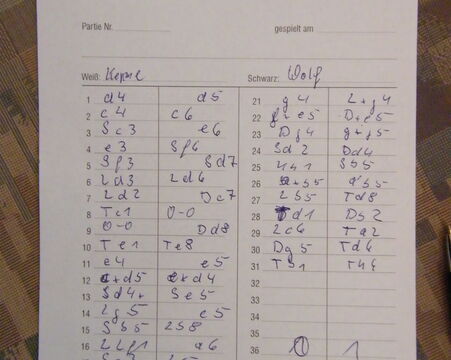 Partie Nr. gespielt am
Weiß: Schwarz: Wolf
1 d4 d5 21 g4 L+g4
2 c4 c6 22 e5 D+e5
3 Sc3 e6 23 Dg4 g+f5
4 e3 Sf6 24 Sd2 Dd4
5 Sf3 Sd7 25 Kh1 Sb5
6 Ld3 Ld6 26 +b5 a+b5
7 Ld2 Dc7 27 Lb5 Td8
8 Tc1 0-0 28 Td1 Db2
9 0-0 Dd8 29 Lc6 Ta2
10 Te1 Te8 30 Dg5 Td6
11 e4 e5 31 Tb1 Th4
12 c+d5 e+d4 32
13 Sd4+ Se5 33
14 Lg5 c5 34
15 Sb5 Lb8 35
16 Lf1 a6 36 0 1